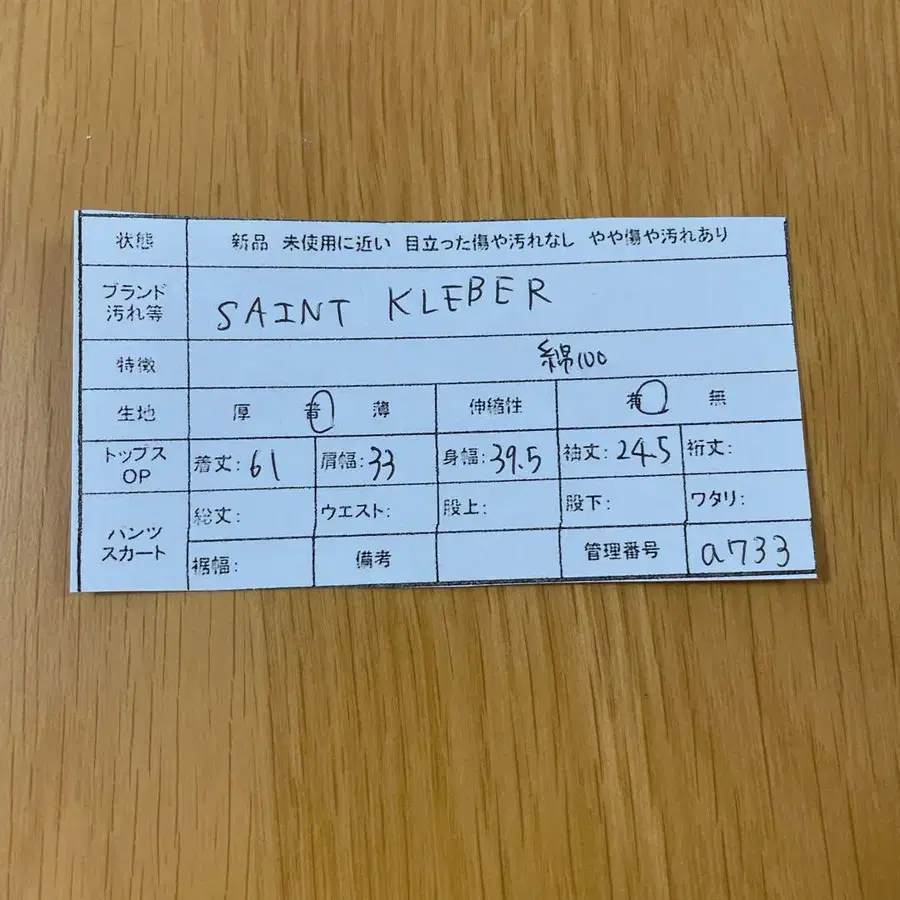 状態 新品 未使用に近い 目立った傷や汚れなし やや傷や汚れあり
ブランド
汚れ等
SAINT KLEBER
特徴 綿100
生地 厚 普 薄 伸縮性 有 無
トップス
OP
着丈:61 肩幅:33 身幅:39.5 袖丈:24.5 裄丈:
パンツ
スカート
総丈: ウエスト: 股上: 股下: ワタリ:
裾幅: 備考 管理番号 a733